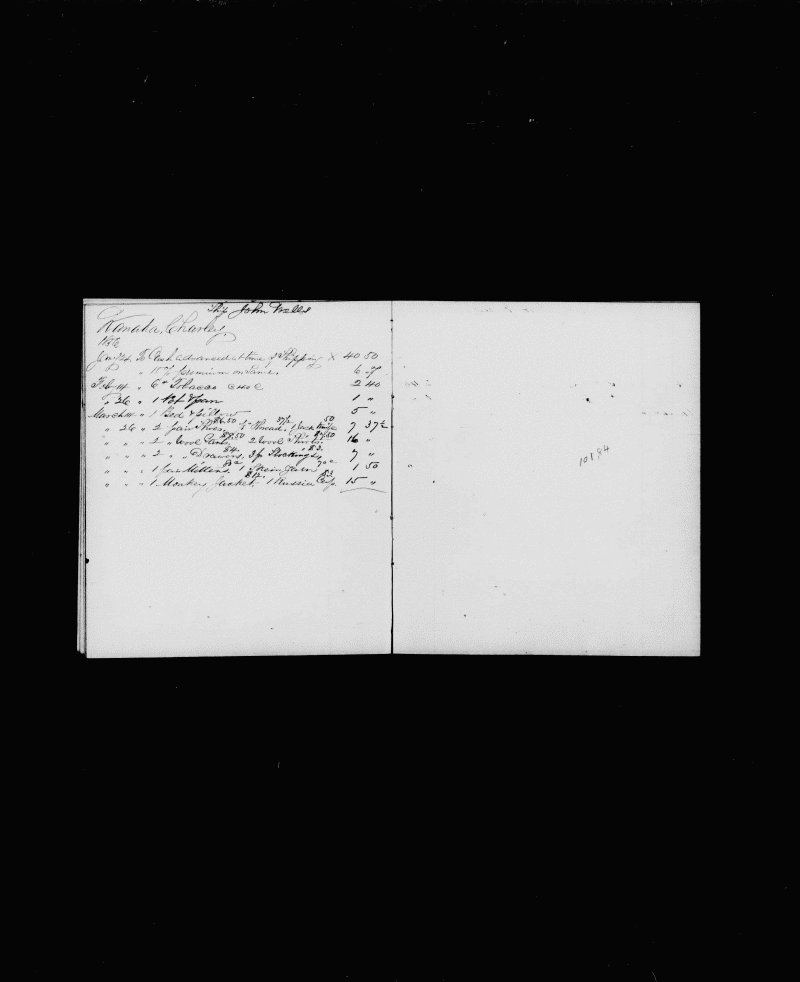 Ship John Wells
Kanaka, Charley.
1876
Jany 24, To Cash advanced at time of Shipping X 40 50
" " 15 % premium on same. 6 07
Feb 14 " 6 lb Tobacco @ 40 c 2 40
" 26 " 1 1 "
March 14 " 1 Bed & Pillow 5 "
" 26 " 2 pair Shoes, 50 Thread, 37½ 1 Jack Knife 50 7 37½
" " " 2 " Wool Pants, 2 Wool Shirts 16 "
" " " 2 " Drawers, $4. 3 pr Stockings, $3. 7 "
" " " 1 pair Mittens, 1 Skein Yarn 1 50
" " " 1 Monkey Jacket, $12. 1 Russia Cap, $3. 15 "
101.84